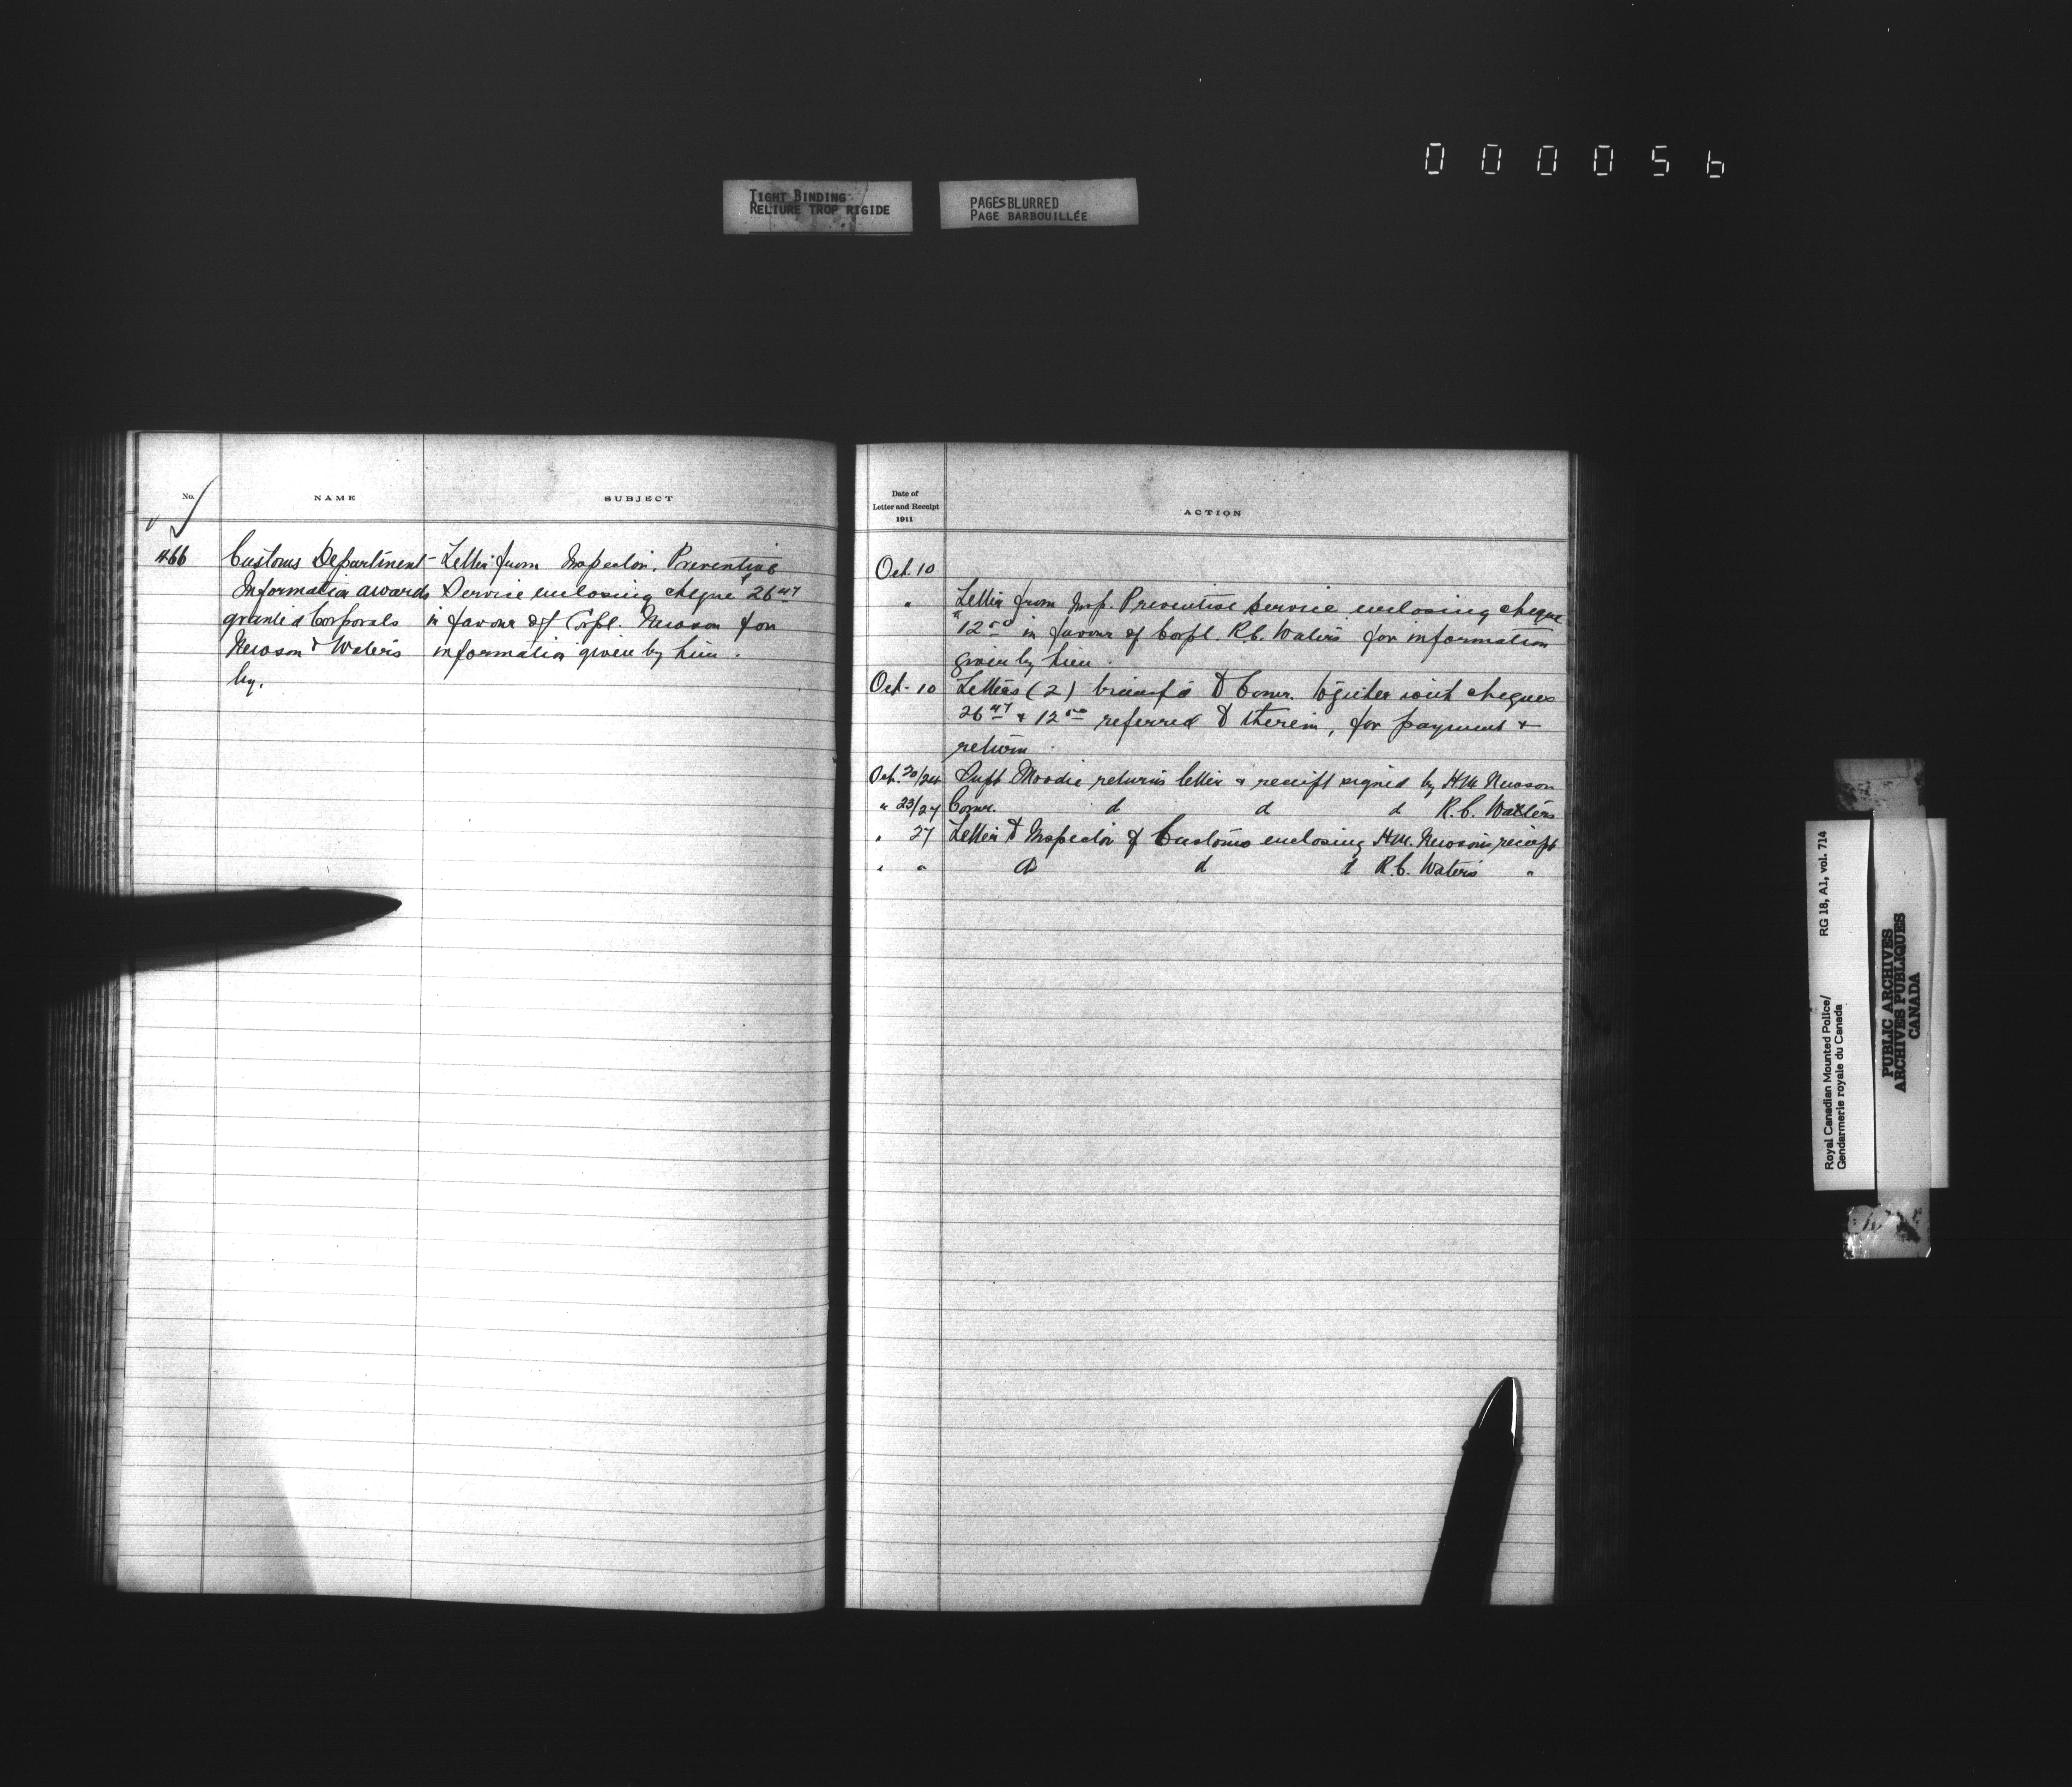 000056
TIGHT BINDING
RELIURE TROP RIGIDE
PAGES BLURRED
PAGE BARBOUILLÉE
No.
NAME
SUBJECT
466
Customs Department -
Information awards
granted Corporals
Newson & Waters
by.
Letter from Inspector, Preventive
Service enclosing cheque $26.47
in favour of Corpl. Newson for
information given by him.
Date of
Letter and Receipt
1911
ACTION
Oct. 10
" Letter from Insp. Preventive Service enclosing cheque
$12.50 in favour of Corpl. R.C. Waters for information
given by him.
Oct. 10 Letters (2) transf'd to Comr. together with cheques
26.47 & 12.50 referred to therein, for payment &
return.
Oct. 20/24 Supt Moodie returns letter & receipt signed by H.M. Newson
" 23/27 Comr. d d d R.C. Waters
" 27 Letter to Inspector of Customs enclosing H.M. Newson's receipt
" " do d d R.C. Waters "
Royal Canadian Mounted Police/
Gendarmerie royale du Canada
RG 18, A1, vol. 714
PUBLIC ARCHIVES
ARCHIVES PUBLIQUES
CANADA